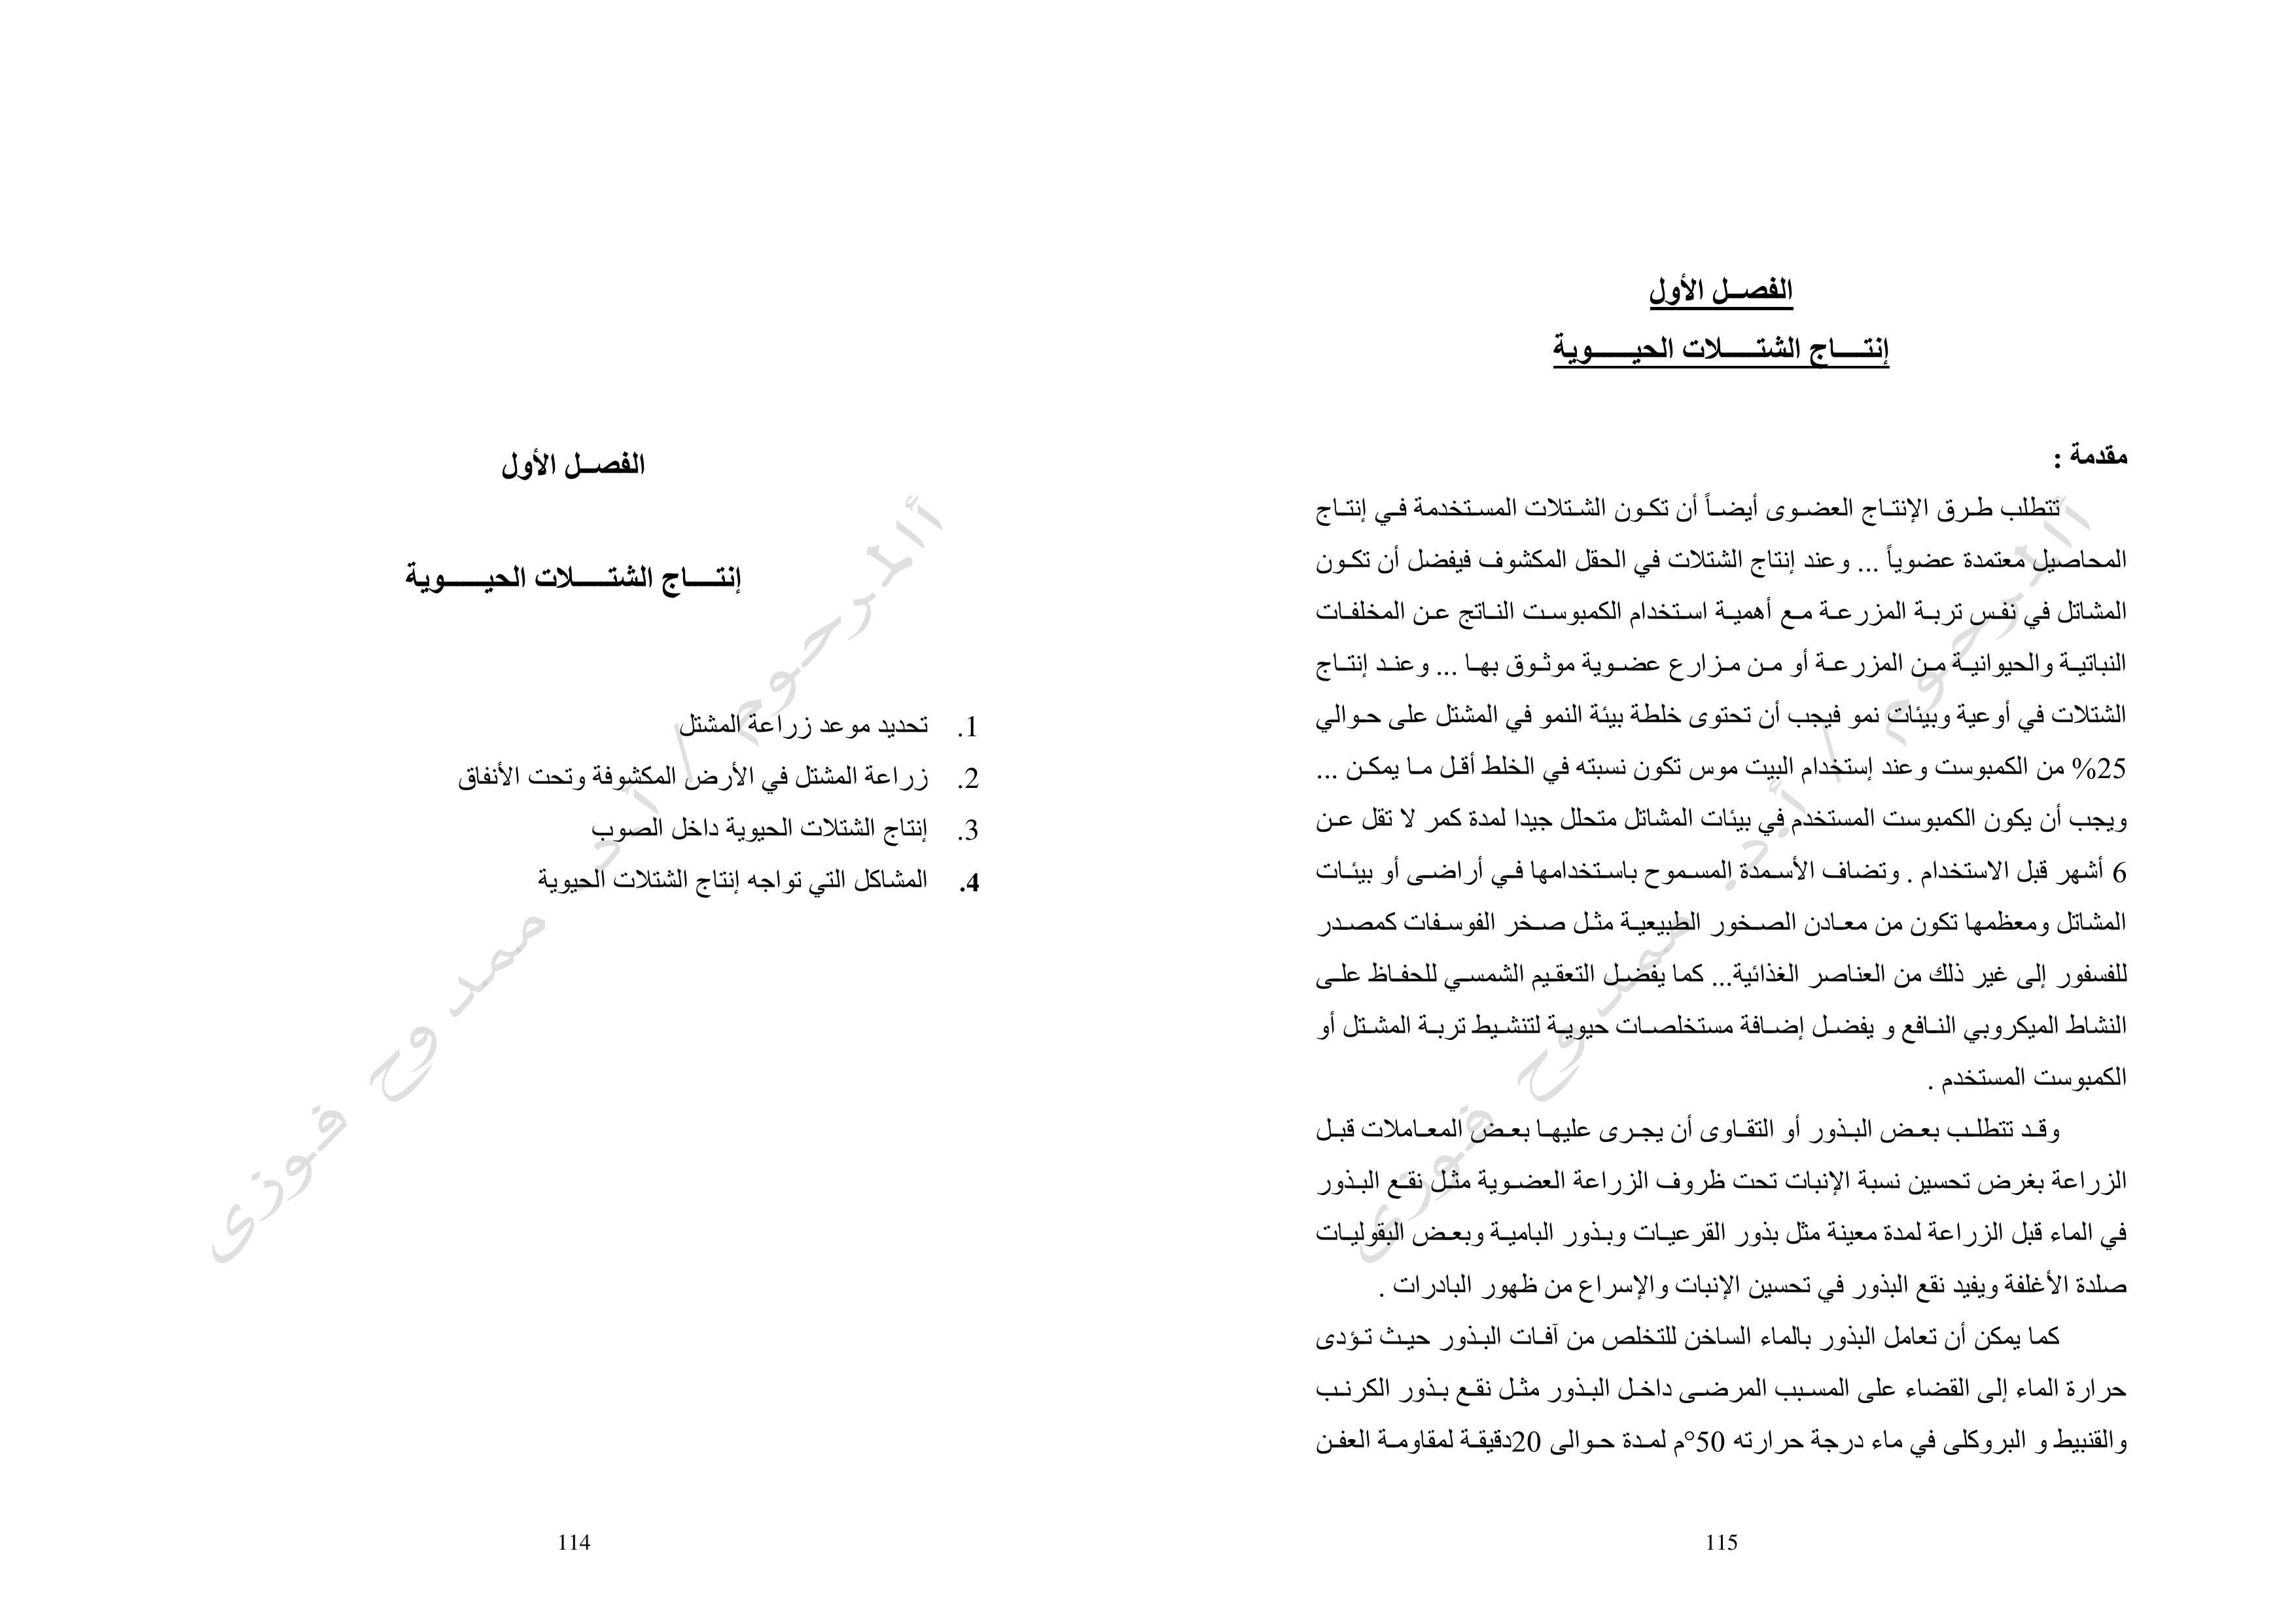 الفصل الأول
إنتاج الشتلات الحيوية
1. تحديد موعد زراعة المشتل
2. زراعة المشتل في الأرض المكشوفة وتحت الأنفاق
3. إنتاج الشتلات الحيوية داخل الصوب
4. المشاكل التي تواجه إنتاج الشتلات الحيوية
ألمرحوم / أ.د. ممدوح فوزى
114
الفصل الأول
إنتاج الشتلات الحيوية
مقدمة :
تتطلب طرق الإنتاج العضوى أيضاً أن تكون الشتلات المستخدمة في إنتاج
المحاصيل معتمدة عضوياً ... وعند إنتاج الشتلات في الحقل المكشوف فيفضل أن تكون
المشاتل في نفس تربة المزرعة مع أهمية استخدام الكمبوست الناتج عن المخلفات
النباتية والحيوانية من المزرعة أو من مزارع عضوية موثوق بها ... وعند إنتاج
الشتلات في أوعية وبيئات نمو فيجب أن تحتوى خلطة بيئة النمو في المشتل على حوالي
25% من الكمبوست وعند إستخدام البيت موس تكون نسبته في الخلط أقل ما يمكن ...
ويجب أن يكون الكمبوست المستخدم في بيئات المشاتل متحلل جيدا لمدة كمر لا تقل عن
6 أشهر قبل الاستخدام . وتضاف الأسمدة المسموح باستخدامها في أراضى أو بيئات
المشاتل ومعظمها تكون من معادن الصخور الطبيعية مثل صخر الفوسفات كمصدر
للفسفور إلى غير ذلك من العناصر الغذائية... كما يفضل التعقيم الشمسي للحفاظ على
النشاط الميكروبي النافع و يفضل إضافة مستخلصات حيوية لتنشيط تربة المشتل أو
الكمبوست المستخدم .
وقد تتطلب بعض البذور أو التقاوى أن يجرى عليها بعض المعاملات قبل
الزراعة بغرض تحسين نسبة الإنبات تحت ظروف الزراعة العضوية مثل نقع البذور
في الماء قبل الزراعة لمدة معينة مثل بذور القرعيات وبذور البامية وبعض البقوليات
صلدة الأغلفة ويفيد نقع البذور في تحسين الإنبات والإسراع من ظهور البادرات .
كما يمكن أن تعامل البذور بالماء الساخن للتخلص من آفات البذور حيث تؤدى
حرارة الماء إلى القضاء على المسبب المرضى داخل البذور مثل نقع بذور الكرنب
والقنبيط و البروكلى في ماء درجة حرارته 50°م لمدة حوالى 20دقيقة لمقاومة العفن
ألمرحوم / أ.د. ممدوح فوزى
115